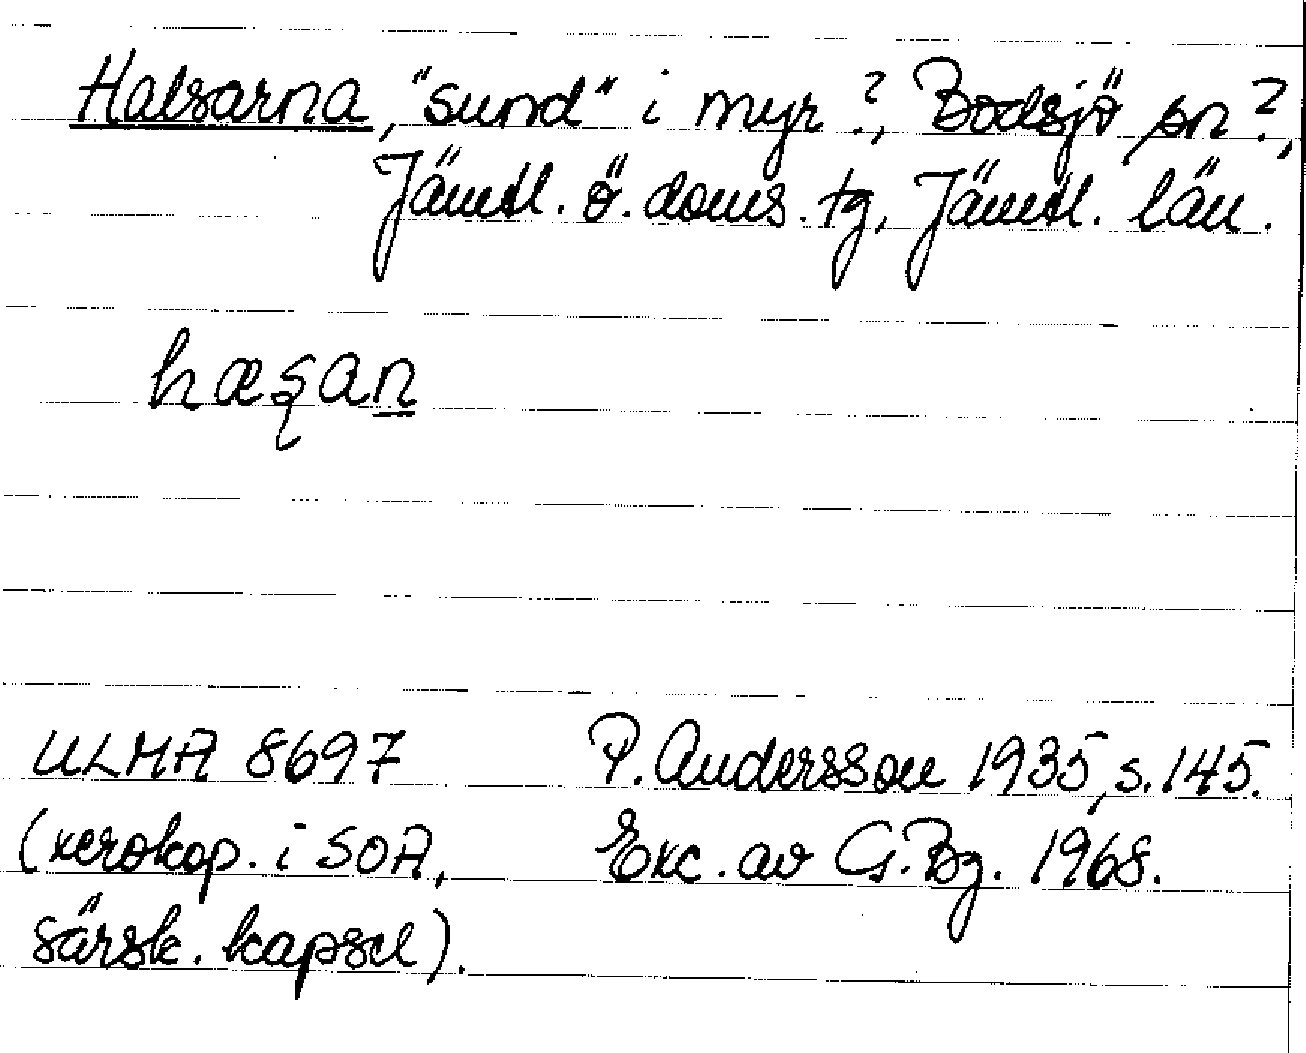 Halsarna, "sund" i myr?, Bodsjö sn?,
Jämtl. ö. doms. tg, Jämtl. län.
hæʂan̲
ULMA 8697 P. Andersson 1935, s. 145.
(xerokop. i SOA, Exc. av G. Bg. 1968.
särsk. kapsel).